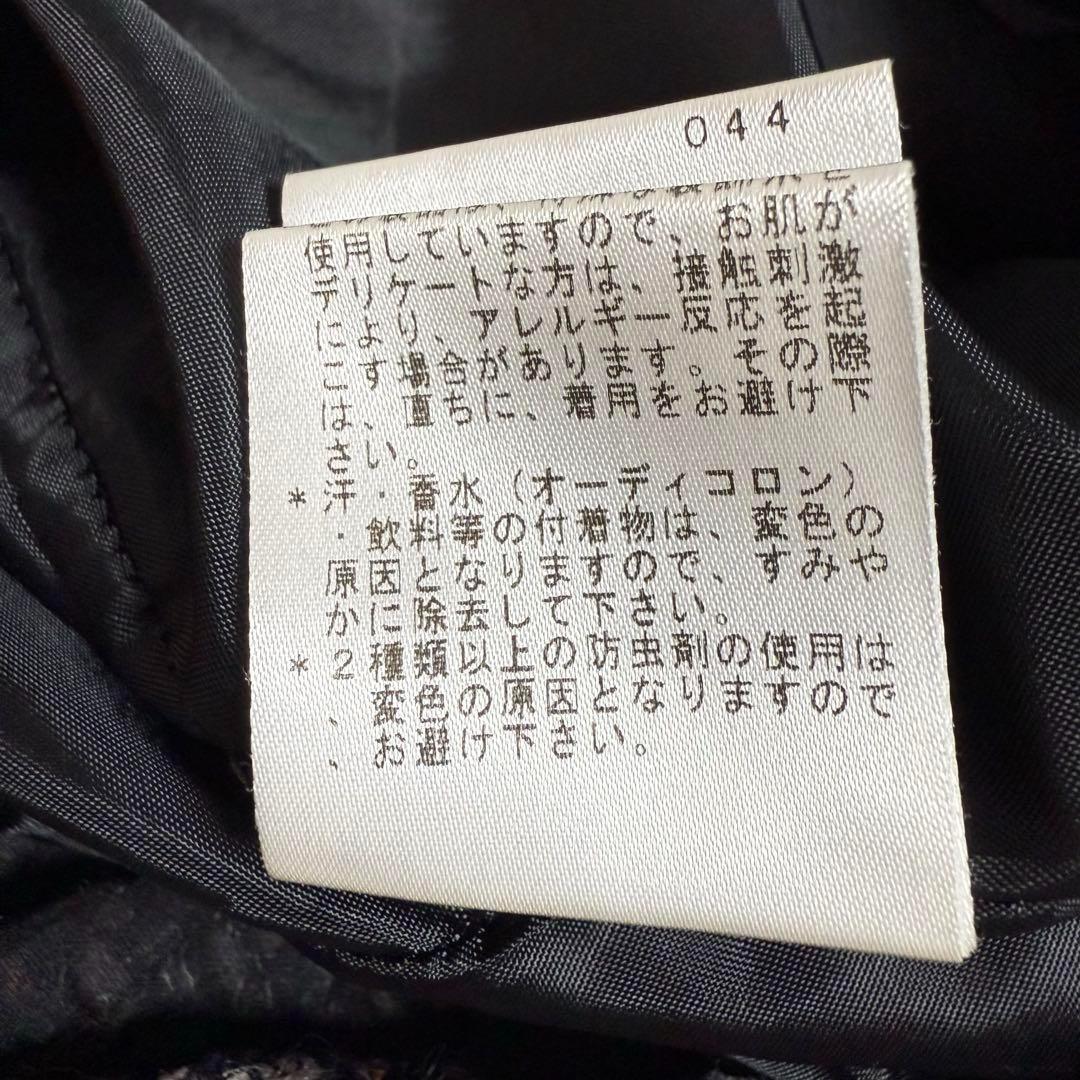 044
使用していますので、お肌が
デリケートな方は、接触刺激
により、アレルギー反応を起
こす場合があります。その際
は、直ちに着用をお避け下
さい。
* 汗・香水(オーディコロン)
・飲料等の付着物は、変色の
原因となりますので、すみや
かに除去して下さい。
* 2種類以上の防虫剤の使用は
、変色の原因となりますので
、お避け下さい。